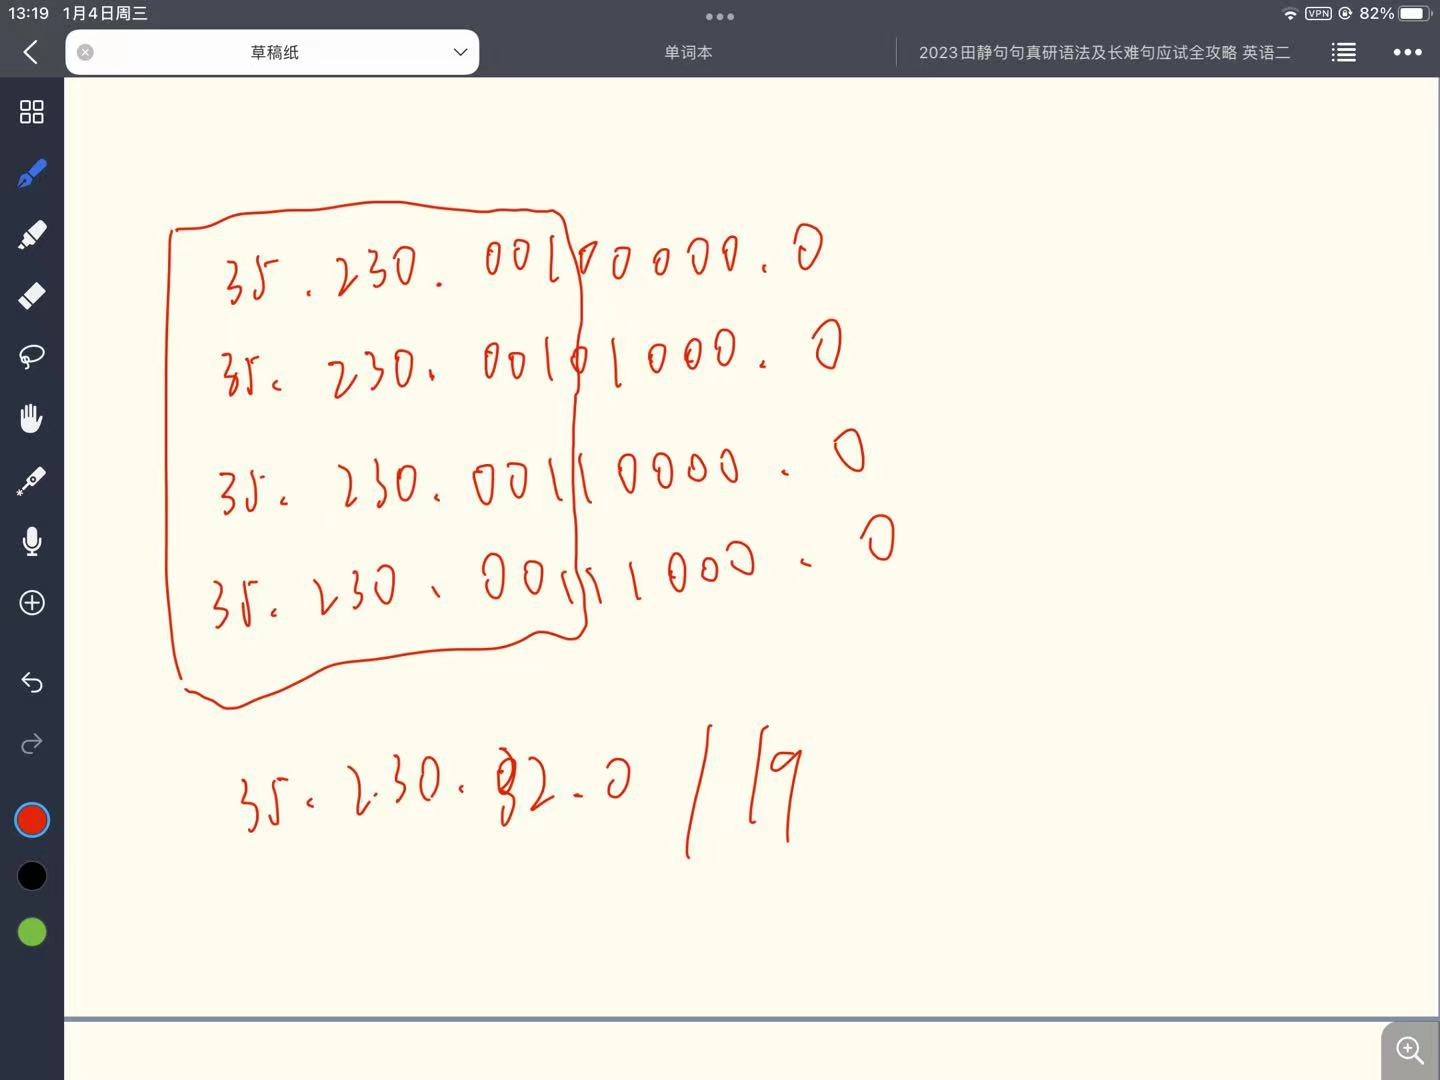 13:19 1月4日周三
VPN 82%
草稿纸 单词本 2023田静句句真研语法及长难句应试全攻略 英语二
35.230.00100000.0
35.230.00101000.0
35.230.00110000.0
35.230.00111000.0
35.230.32.0/19